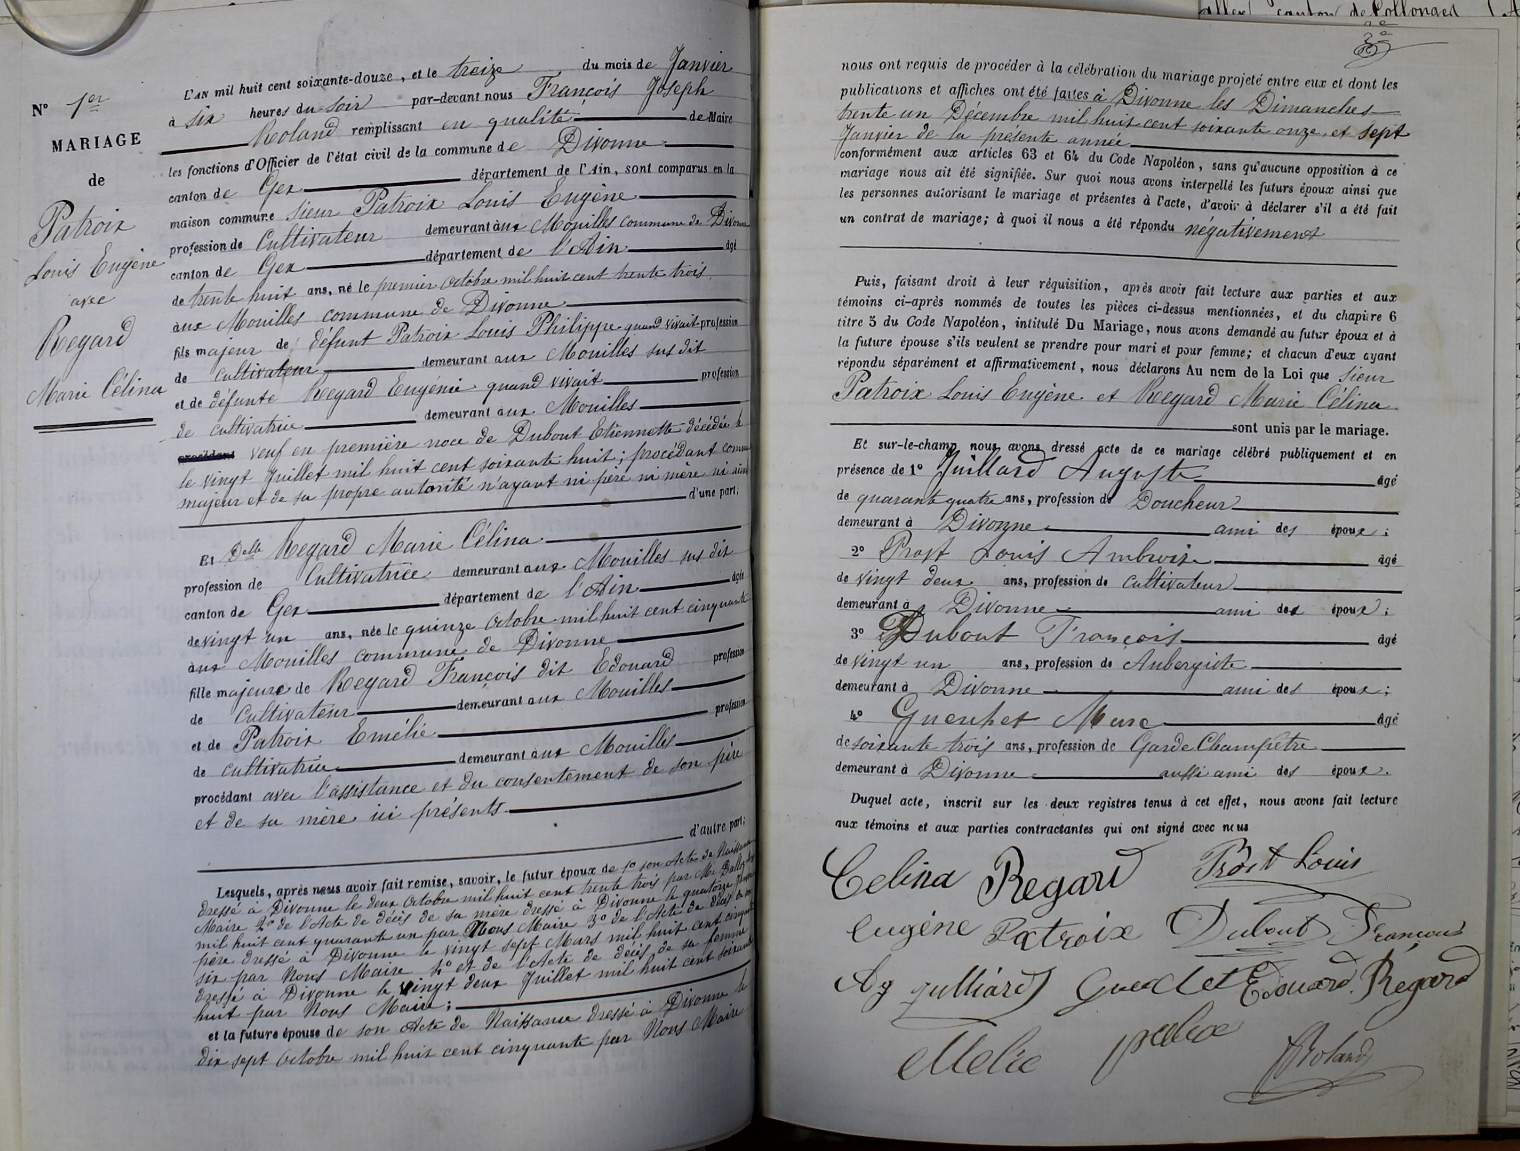 aller canton de Collonges
N° 1er
MARIAGE
de
Patroix
Louis Eugène
avec
Regard
Marie Célina
L'AN mil huit cent soixante-douze, et le treize du mois de Janvier
à six heures du soir par-devant nous François Joseph
Roland remplissant en qualité de Maire
les fonctions d'Officier de l'état civil de la commune de Divonne
canton de Gex département de l'Ain, sont comparus en la
maison commune sieur Patroix Louis Eugène
profession de Cultivateur demeurant aux Mouilles commune de Divonne
canton de Gex département de l'Ain âgé
de trente huit ans, né le premier Octobre mil huit cent trente trois
aux Mouilles commune de Divonne
fils majeur de défunt Patroix Louis Philippe quand vivait profession
de cultivateur demeurant aux Mouilles sus dit
et de défunte Regard Eugénie quand vivait profession
de cultivatrice demeurant aux Mouilles
procédant veuf en première noce de Dubout Etiennette décédée le
le vingt Juillet mil huit cent soixante huit; procédant comme
majeur et de sa propre autorité n'ayant ni père ni mère ni
d'une part;
Et Delle Regard Marie Célina
profession de Cultivatrice demeurant aux Mouilles sus dit
canton de Gex département de l'Ain âgée
de vingt un ans, née le quinze Octobre mil huit cent cinquante
aux Mouilles commune de Divonne
fille majeure de Regard François dit Edouard profession
de Cultivateur demeurant aux Mouilles
et de Patroix Emélie profession
de cultivatrice demeurant aux Mouilles
procédant avec l'assistance et du consentement de son père
et de sa mère ici présents
d'autre part;
Lesquels, après nous avoir fait remise, savoir, le futur époux de 1° son Acte de Naissance
dressé à Divonne le deux Octobre mil huit cent trente trois par Mr
Maire 2° de l'Acte de décès de sa mère dressé à Divonne le quatorze
mil huit cent quarante un par Nous Maire 3° de l'Acte de décès de son
père dressé à Divonne le vingt sept Mars mil huit cent cinquante
six par Nous Maire 4° et de l'Acte de décès de sa femme
dressé à Divonne le vingt deux Juillet mil huit cent soixante
huit par Nous Maire;
et la future épouse de son Acte de Naissance dressé à Divonne le
dix sept Octobre mil huit cent cinquante par Nous Maire
nous ont requis de procéder à la célébration du mariage projeté entre eux et dont les
publications et affiches ont été faites à Divonne les Dimanches
trente un Décembre mil huit cent soixante onze, et sept
Janvier de la présente année
conformément aux articles 63 et 64 du Code Napoléon, sans qu'aucune opposition à ce
mariage nous ait été signifiée. Sur quoi nous avons interpellé les futurs époux ainsi que
les personnes autorisant le mariage et présentes à l'acte, d'avoir à déclarer s'il a été fait
un contrat de mariage; à quoi il nous a été répondu négativement
Puis, faisant droit à leur réquisition, après avoir fait lecture aux parties et aux
témoins ci-après nommés de toutes les pièces ci-dessus mentionnées, et du chapitre 6
titre 5 du Code Napoléon, intitulé Du Mariage, nous avons demandé au futur époux et à
la future épouse s'ils veulent se prendre pour mari et pour femme; et chacun d'eux ayant
répondu séparément et affirmativement, nous déclarons Au nom de la Loi que sieur
Patroix Louis Eugène et Regard Marie Célina
sont unis par le mariage.
Et sur-le-champ nous avons dressé acte de ce mariage célébré publiquement et en
présence de 1° Juillard Auguste âgé
de quarante quatre ans, profession de Doucheur
demeurant à Divonne ami des époux;
2° Prost Louis Ambroise âgé
de vingt deux ans, profession de cultivateur
demeurant à Divonne ami des époux;
3° Dubout François âgé
de vingt un ans, profession de Aubergiste
demeurant à Divonne ami des époux;
4° Gueuhet Marc âgé
de soixante trois ans, profession de Garde Champêtre
demeurant à Divonne aussi ami des époux.
Duquel acte, inscrit sur les deux registres tenus à cet effet, nous avons fait lecture
aux témoins et aux parties contractantes qui ont signé avec nous
Celina Regard Prost Louis
Eugène Patroix Dubout François
Ag Julliard Edouard Régard
Melie
Roland